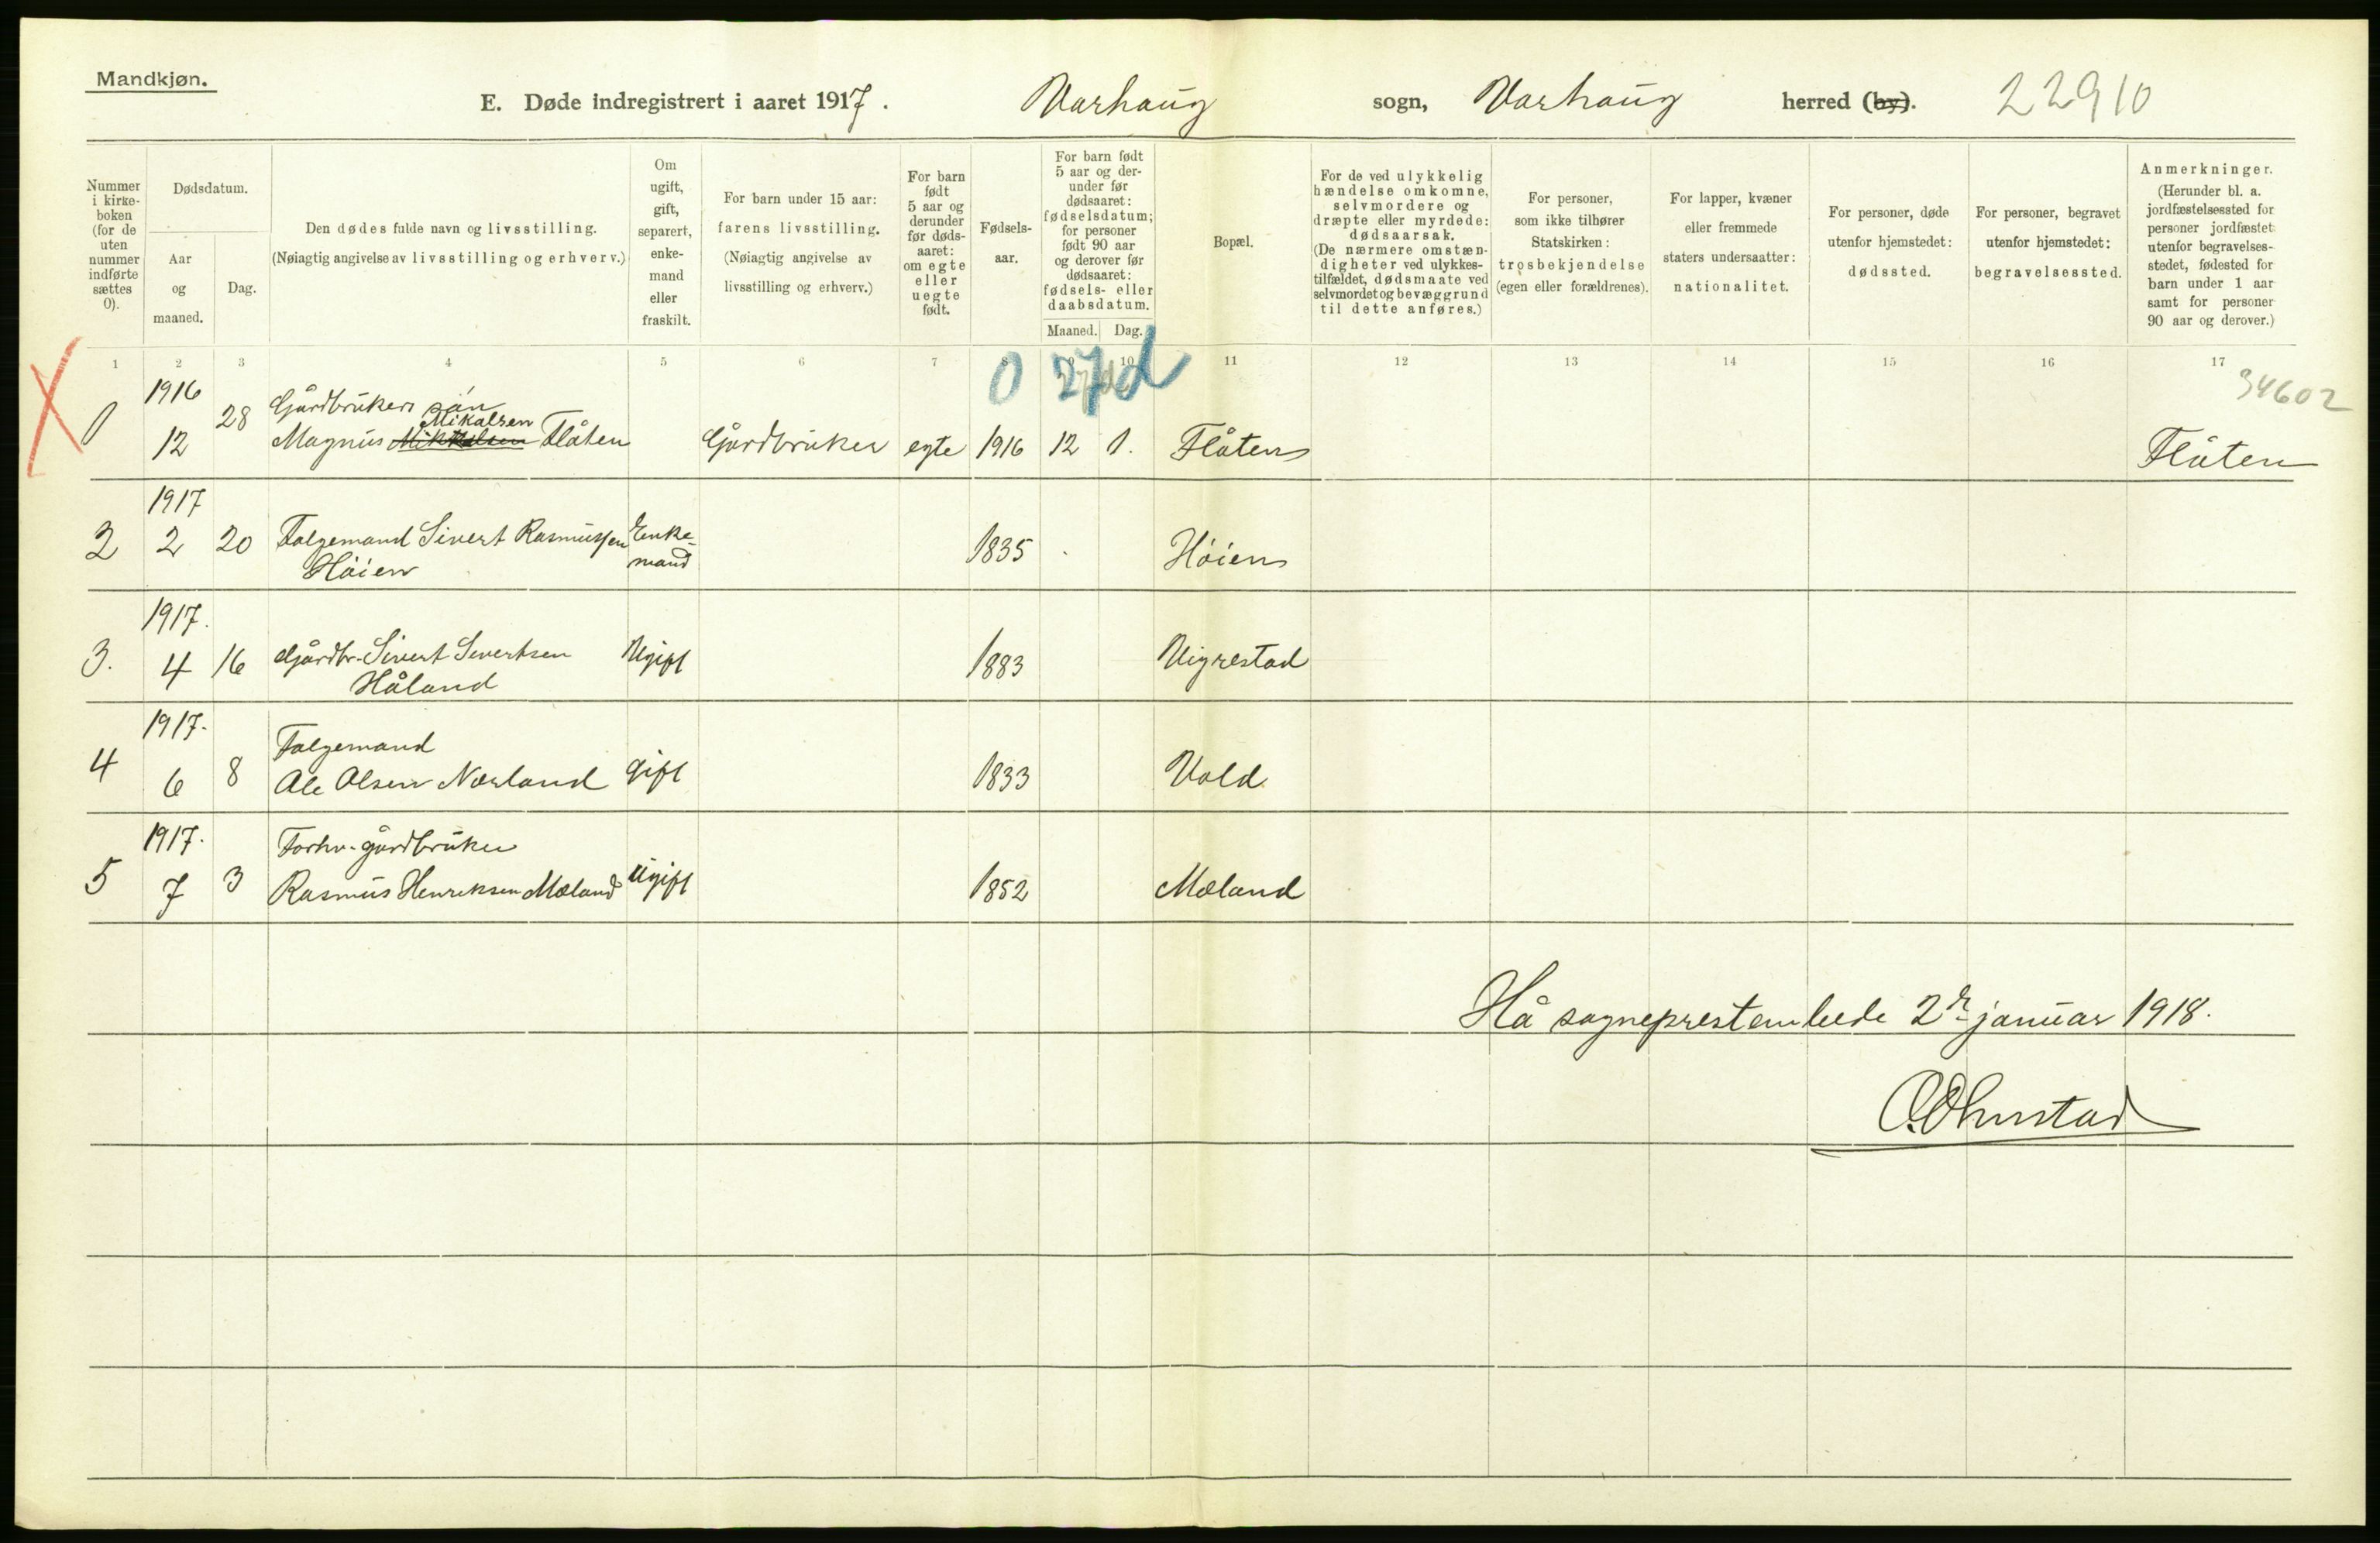 Mandkjøn.
E. Døde indregistrert i aaret 1917. Varhaug sogn, Varhaug herred (by). 22910
Nummer i kirkeboken (for de uten nummer indførte sættes 0).
Dødsdatum.
Aar og maaned.
Dag.
Den dødes fulde navn og livsstilling.
(Nøiagtig angivelse av livsstilling og erhverv.)
Om ugift, gift, separert, enkemand eller fraskilt.
For barn under 15 aar:
farens livsstilling.
(Nøiagtig angivelse av livsstilling og erhverv.)
For barn født 5 aar og derunder før dødsaaret: om egte eller uegte født.
Fødselsaar.
For barn født 5 aar og derunder før dødsaaret: fødselsdatum; for personer født 90 aar og derover før dødsaaret: fødsels- eller daabsdatum.
Maaned. Dag.
Bopæl.
For de ved ulykkelig hændelse omkomne, selvmordere og dræpte eller myrdede: dødsaarsak.
(De nærmere omstændigheter ved ulykkestilfældet, dødsmaate ved selvmordet og bevæggrund til dette anføres.)
For personer, som ikke tilhører Statskirken: trosbekjendelse (egen eller forældrenes).
For lapper, kvæner eller fremmede staters undersaatter: nationalitet.
For personer, døde utenfor hjemstedet: dødssted.
For personer, begravet utenfor hjemstedet: begravelsessted.
Anmerkninger.
(Herunder bl. a. jordfæstelsessted for personer jordfæstet utenfor begravelsesstedet, fødested for barn under 1 aar samt for personer 90 aar og derover.)
1 2 3 4 5 6 7 8 9 10 11 12 13 14 15 16 17
0 27d
34602
1 1916 12 28 Gårdbrukers søn
Mikalsen
Magnus Mikkelsen Flåten Gårdbruker egte 1916 12 1. Flåten Flåten
2 1917 2 20 Folgemand Sivert Rasmussen Høien Enkemand 1835 Høien
3. 1917. 4 16 Gårdbr. Sivert Sivertsen Håland Ugift 1883 Vigrestad
4 1917. 6 8 Folgemand
Ole Olsen Nærland gift 1833 Vold
5 1917. 7 3 Forhv. gårdbruker
Rasmus Henriksen Mæland Ugift 1852 Mæland
Hå sogneprestembede 2. januar 1918.